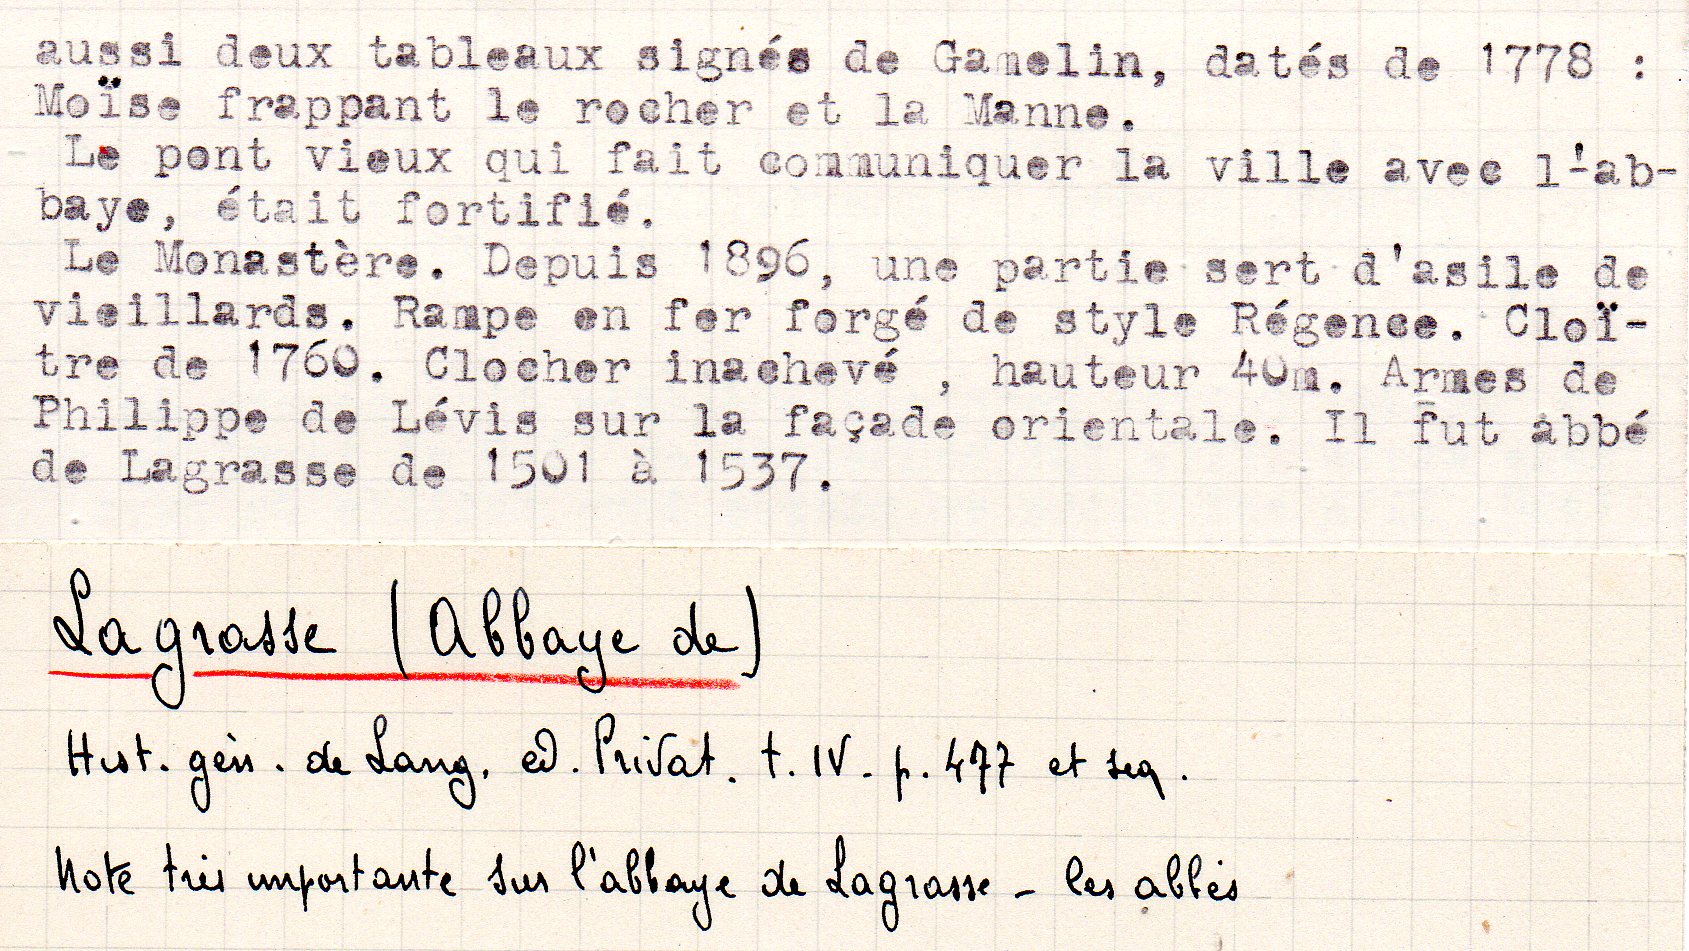 aussi deux tableaux signés de Gamelin, datés de 1778 :
Moïse frappant le rocher et la Manne.
Le pont vieux qui fait communiquer la ville avec l'ab-
baye, était fortifié.
Le Monastère. Depuis 1896, une partie sert d'asile de
vieillards. Rampe en fer forgé de style Régence. Cloï-
tre de 1760. Clocher inachevé , hauteur 40m. Armes de
Philippe de Lévis sur la façade orientale. Il fut abbé
de Lagrasse de 1501 à 1537.
Lagrasse (Abbaye de)
Hist. gén. de Lang. ed. Privat. t. IV - p. 477 et seq.
Note très importante sur l'abbaye de Lagrasse - les abbés